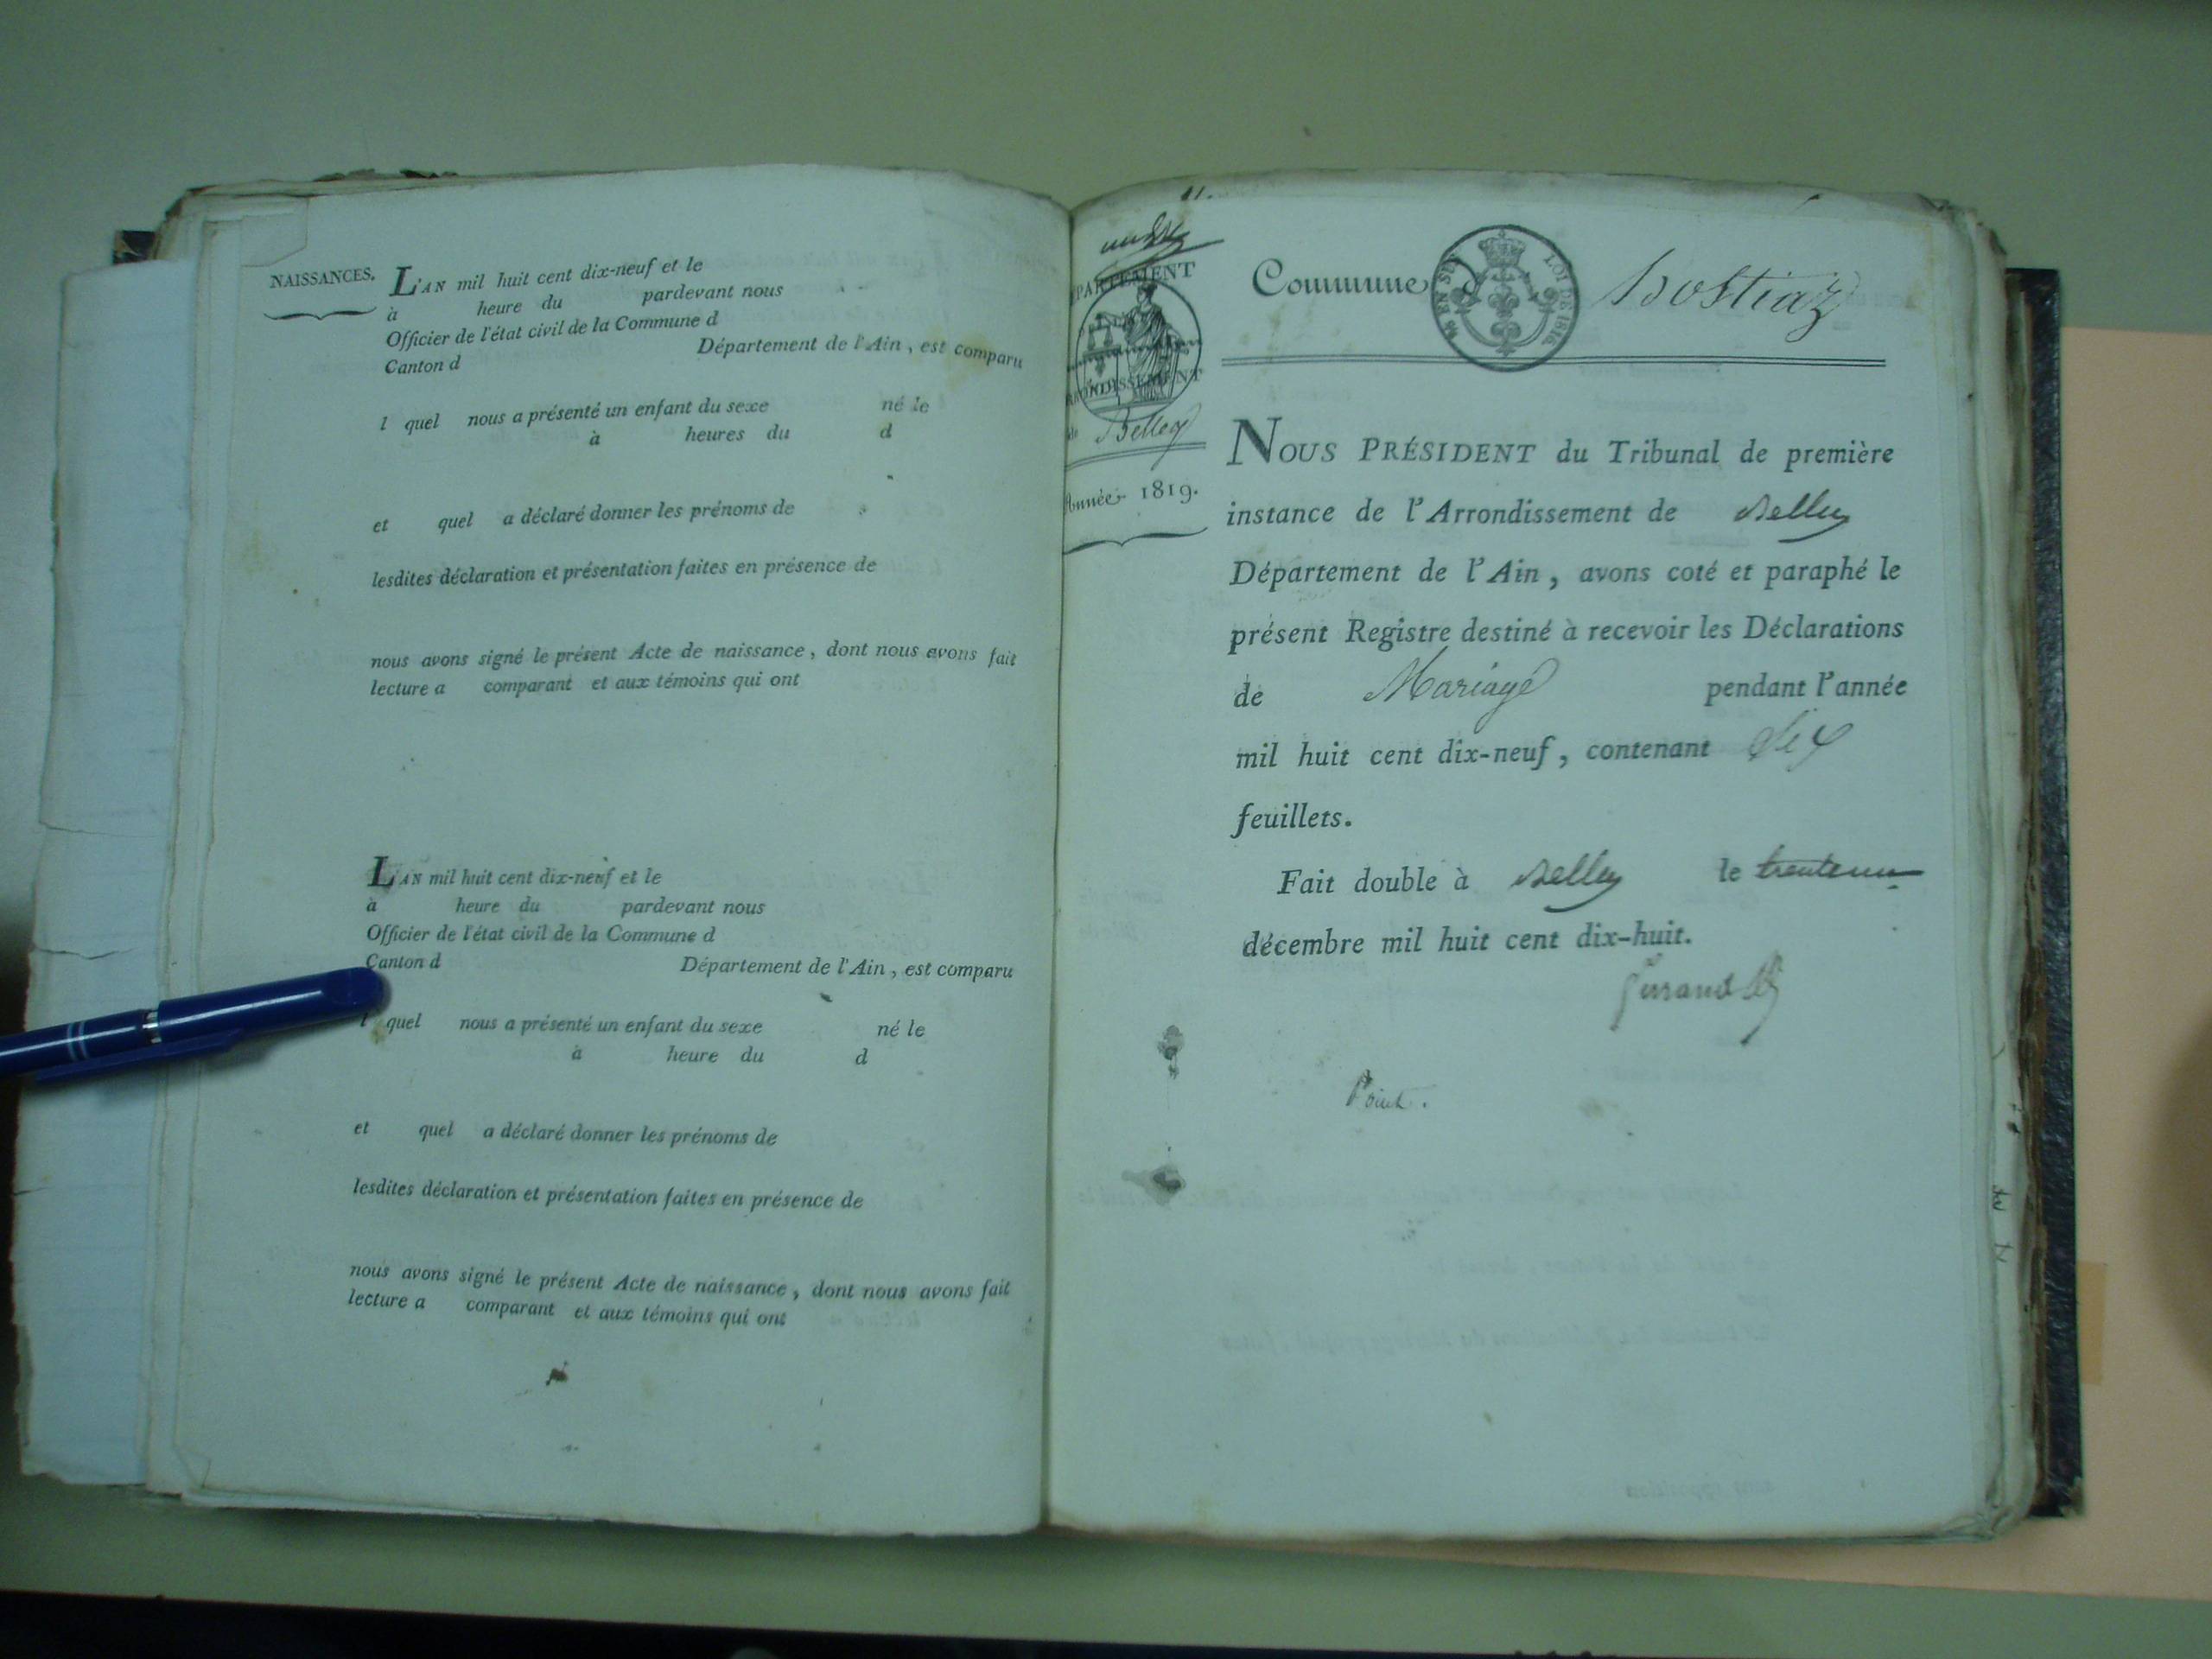 NAISSANCES.
L'AN mil huit cent dix-neuf et le
à heure du pardevant nous
Officier de l'état civil de la Commune d
Canton d Département de l'Ain, est comparu
l quel nous a présenté un enfant du sexe né le
à heures du d
et quel a déclaré donner les prénoms de
lesdites déclaration et présentation faites en présence de
nous avons signé le présent Acte de naissance, dont nous avons fait
lecture a comparant et aux témoins qui ont
L'AN mil huit cent dix-neuf et le
à heure du pardevant nous
Officier de l'état civil de la Commune d
Canton d Département de l'Ain, est comparu
l quel nous a présenté un enfant du sexe né le
à heure du d
et quel a déclaré donner les prénoms de
lesdites déclaration et présentation faites en présence de
nous avons signé le présent Acte de naissance, dont nous avons fait
lecture a comparant et aux témoins qui ont
11.
DÉPARTEMENT
ARRONDISSEMENT
de Belley
Année 1819.
Commune d Hostiaz
LOI DE 1816
NOUS PRÉSIDENT du Tribunal de première
instance de l'Arrondissement de Belley
Département de l'Ain, avons coté et paraphé le
présent Registre destiné à recevoir les Déclarations
de Mariage pendant l'année
mil huit cent dix-neuf, contenant six
feuillets.
Fait double à Belley le trente un
décembre mil huit cent dix-huit.